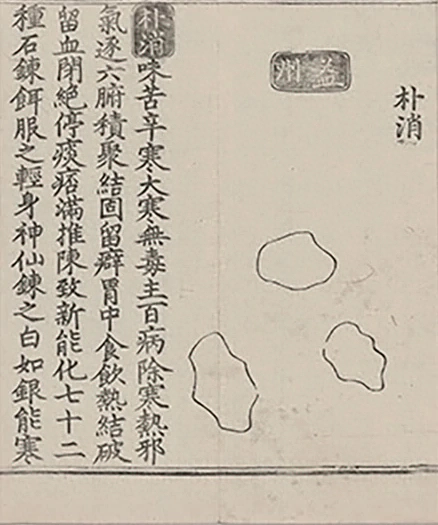 朴消
益州
朴消味苦辛寒大寒無毒主百病除寒熱邪
氣逐六腑積聚結固留癖胃中食飲熱結破
留血閉絕停痰痞滿推陳致新能化七十二
種石鍊餌服之輕身神仙鍊之白如銀能寒